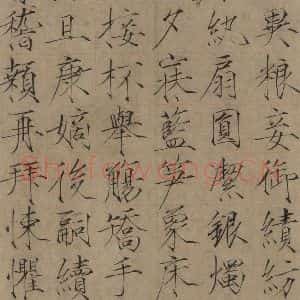 異粮妾御績紡
紈扇圓絜銀燭
夕寐藍笋象床
接杯舉觴矯手
且康嫡後嗣續
稽顙再拜悚懼